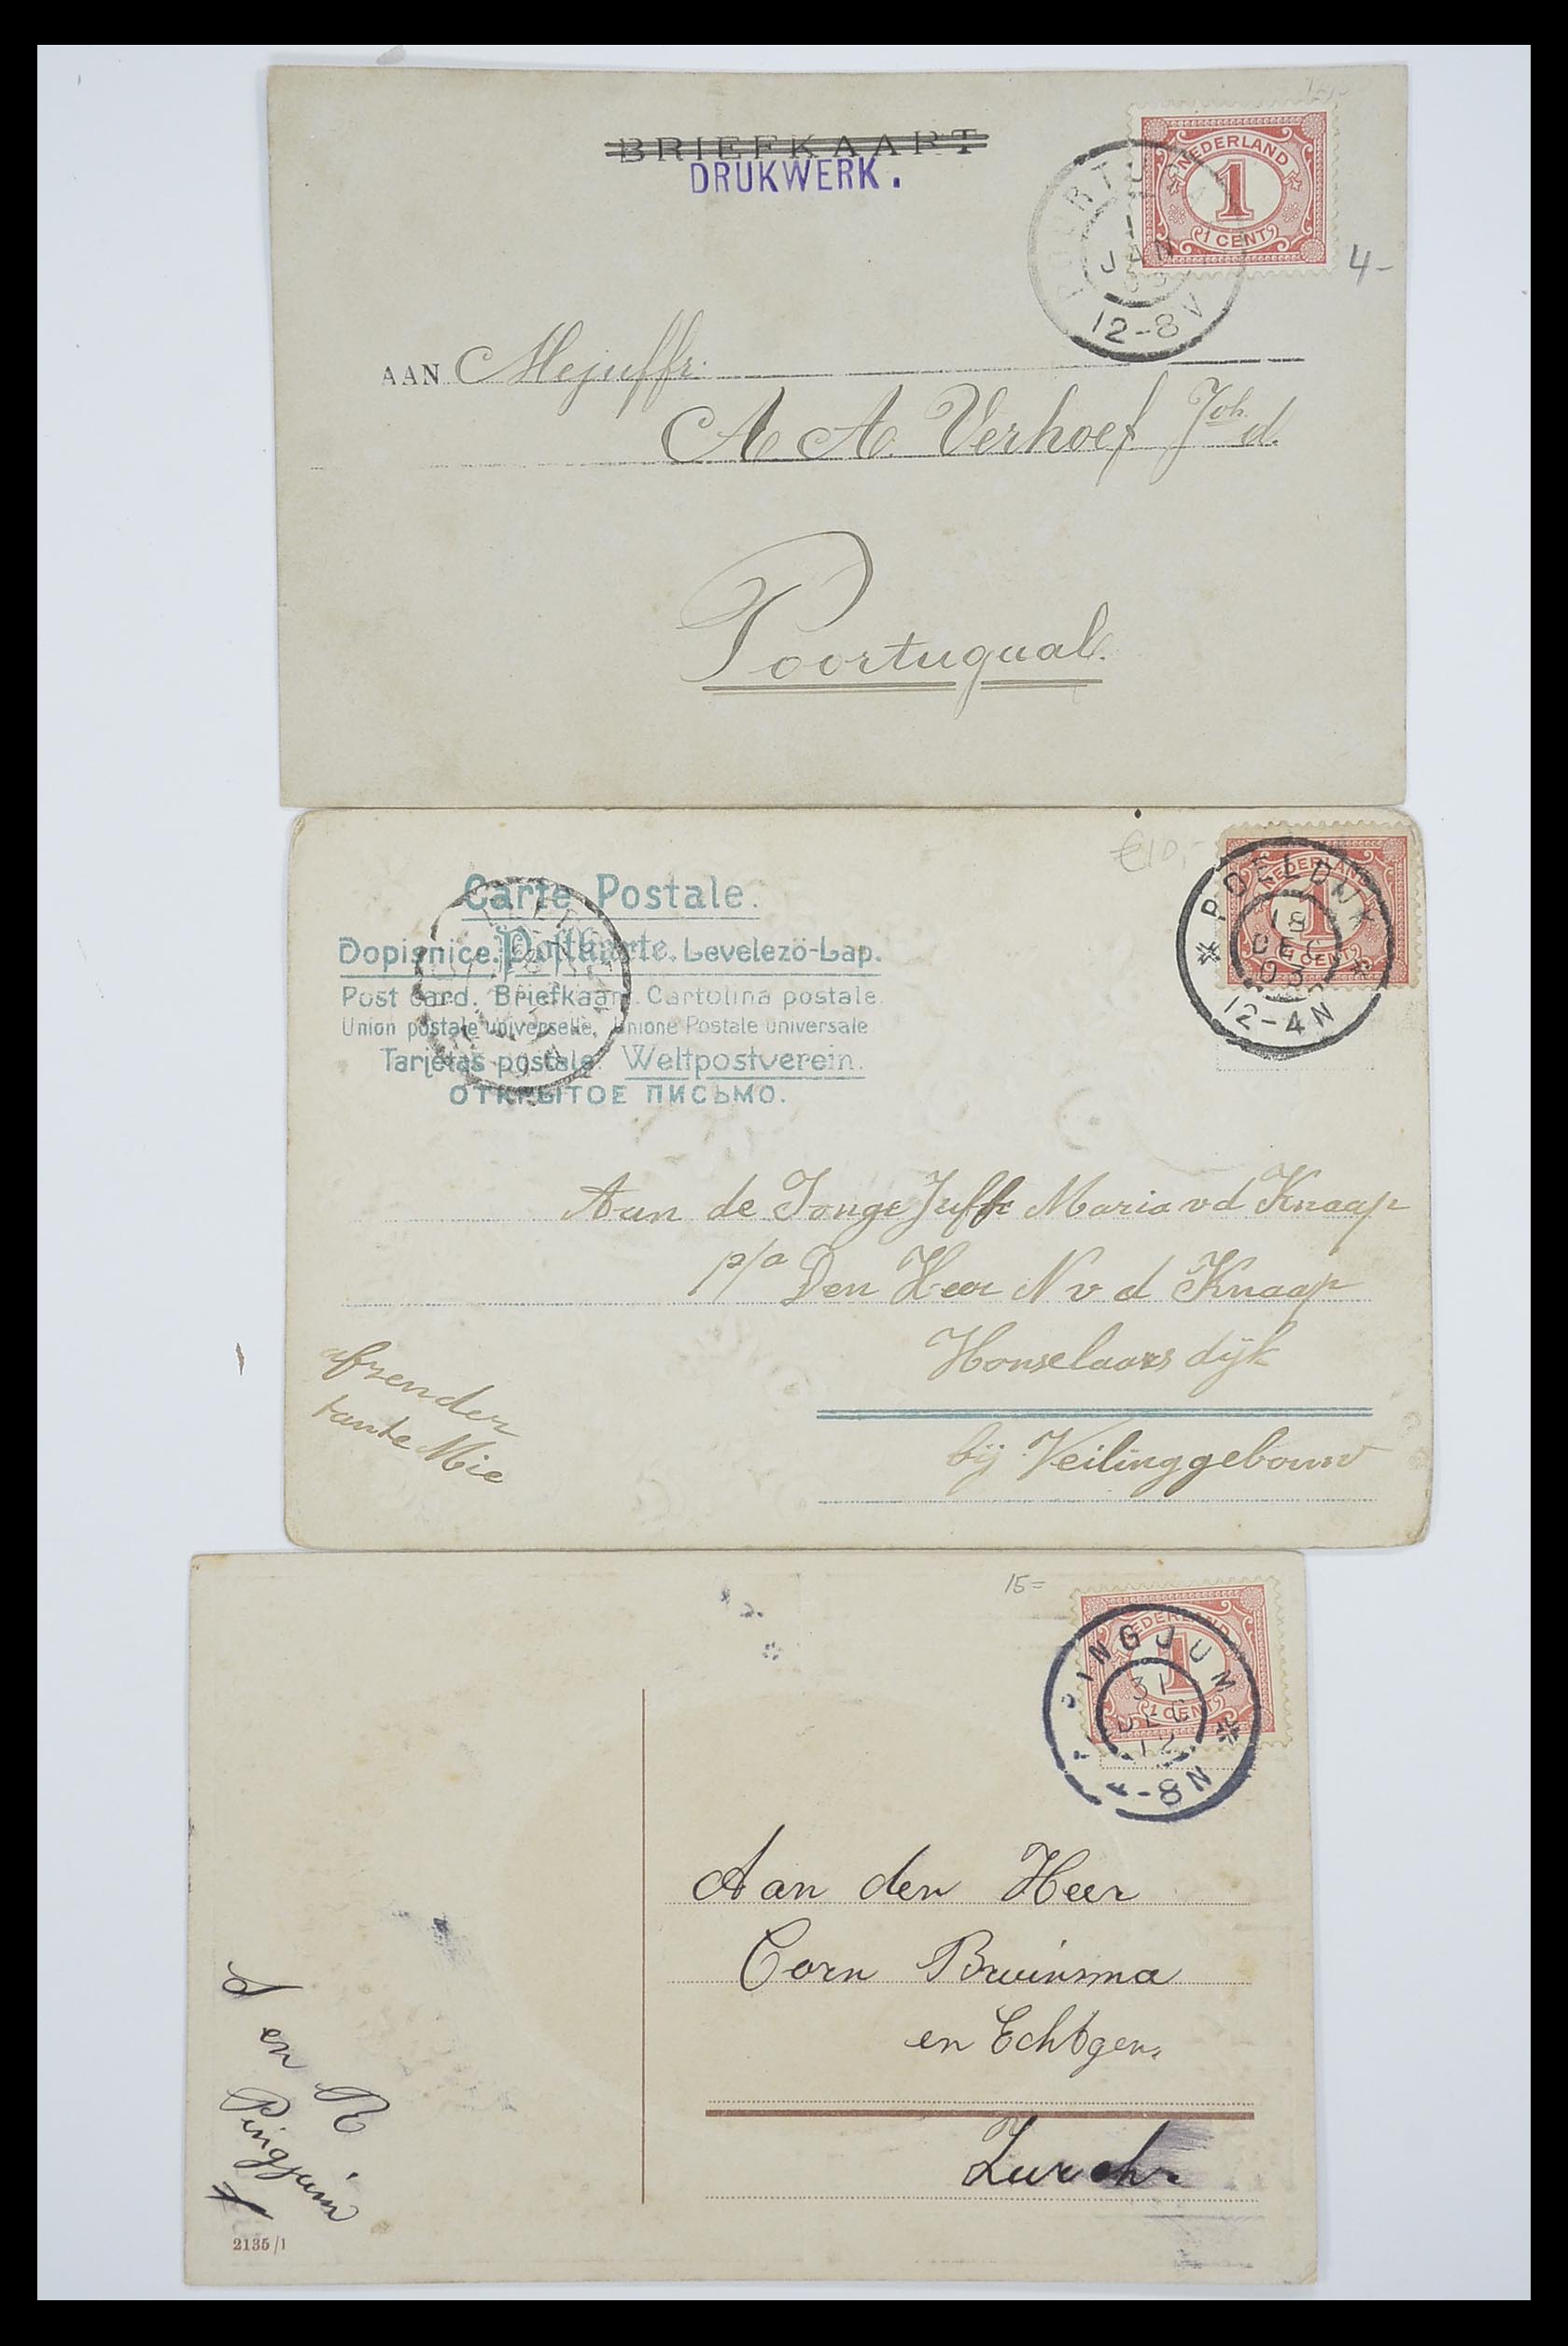 BRIEFKAART
DRUKWERK.
NEDERLAND
1
1 CENT
JAN
12-8V
4-
AAN Mejuffr.
A A. Verhoef Joh. d.
Poortugaal.
€10,-
Carte Postale.
Dopisnice. Postkarte. Levelezö-Lap.
Post card. Briefkaart. Cartolina postale.
Union postale universelle. Unione Postale universale
Tarjetas postale. Weltpostverein.
ОТКРЫТОЕ ПИСЬМО.
NEDERLAND
1
1 CENT
POELDIJK
18
DEC
03
12-4N
Aan de Jonge Juffr Maria vd Knaap
p/a Den Heer N v d Knaap
Honselaarsdijk
bij Veilinggebouw
afzender
tante Mie
15=
NEDERLAND
1
1 CENT
PINGJUM
31
DEC
12
4-8N
Aan den Heer
Corn Bruinsma
en Echtgen.
Zurich
S en R
Pingjum
2135/1